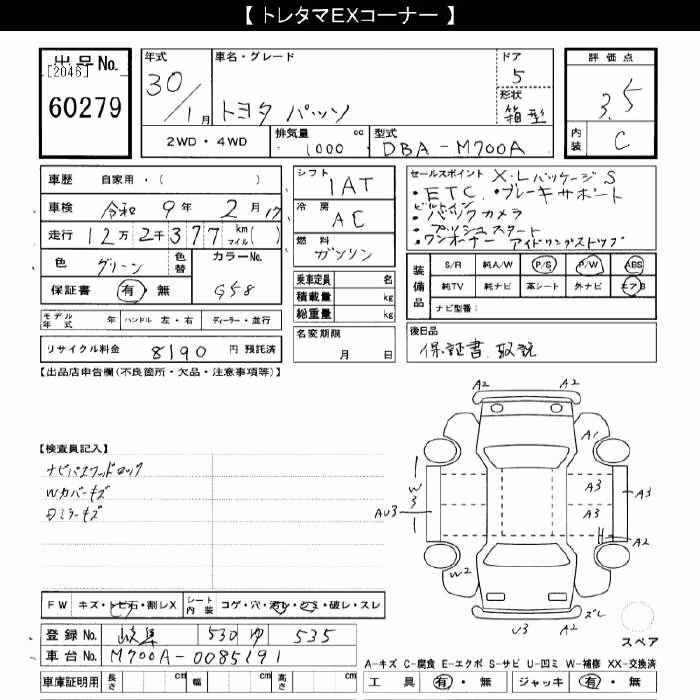 【 トレタマEXコーナー 】
出品No.
[2046]
60279
年式
30/1月
車名・グレード
トヨタ パッソ
ドア
5
形状
箱型
2WD ・ 4WD
排気量 1000 cc
型式 DBA-M700A
評価点
3.5
内装
C
車歴 自家用・( )
車検 令和 9年 2月 17
走行 12万2千377 km マイル( )
色 グリーン 色替 カラーNo. G58
保証書 有・無
モデル年式 年 ハンドル 左・右 ディーラー・並行
リサイクル料金 8190 円 預託済
シフト
IAT
冷房
AC
燃料
ガソリン
乗車定員 名
積載量 kg
総重量 kg
名変期限
月 日
セールスポイント X・Lパッケージ S
・ETC ・ブレーキサポート
ビルトイン
・バックカメラ
・プッシュスタート
・ワンオーナー アイドリングストップ
装備品
S/R 純A/W P/S P/W ABS
純TV 純ナビ 革シート 外ナビ エアB
ナビ型番:
後日品
保証書、取説
【出品店申告欄(不良箇所・欠品・注意事項等)】
【検査員記入】
ナビパスワードロック
Wカバーキズ
Dミラーキズ
A2 A2
A1
W3
A3
A3
A3
AU3
A2
W2
U3 A2 ズレ
スペア
FW キズ・トビ石・割レX シート内装 コゲ・穴・汚レ・シミ・破レ・スレ
登録No. 岐阜 530 ゆ 535
車台No. M700A-0085191
車庫証明用 長さ cm 幅 cm 高さ cm
A-キズ C-腐食 E-エクボ S-サビ U-凹ミ W-補修 XX-交換済
工具 有・無 ジャッキ 有・無